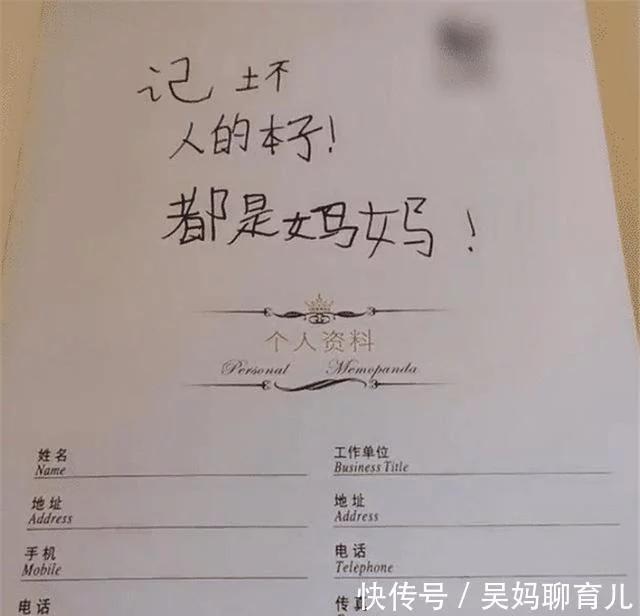 记坏
人的本子！
都是妈妈！
个人资料
Personal Memopanda
姓名 工作单位
Name Business Title
地址 地址
Address Address
手机 电话
Mobile Telephone
电话 传真
快传号 / 吴妈聊育儿